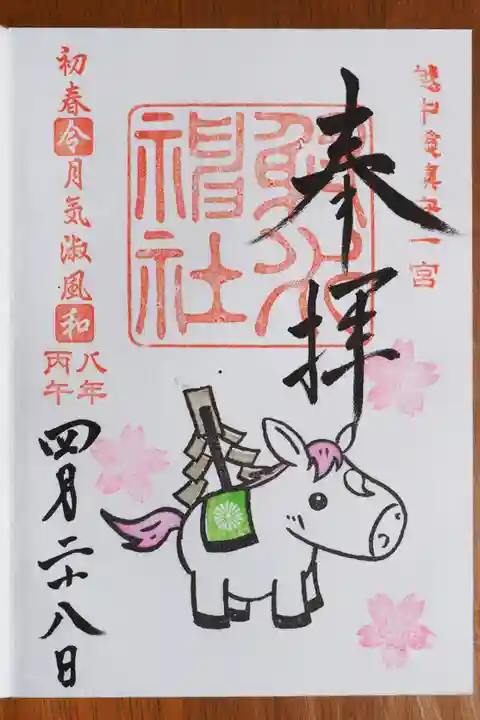 越中一宮
奉拝
射水
神社
初春令月気淑風和
丙午
八年
四月二十八日